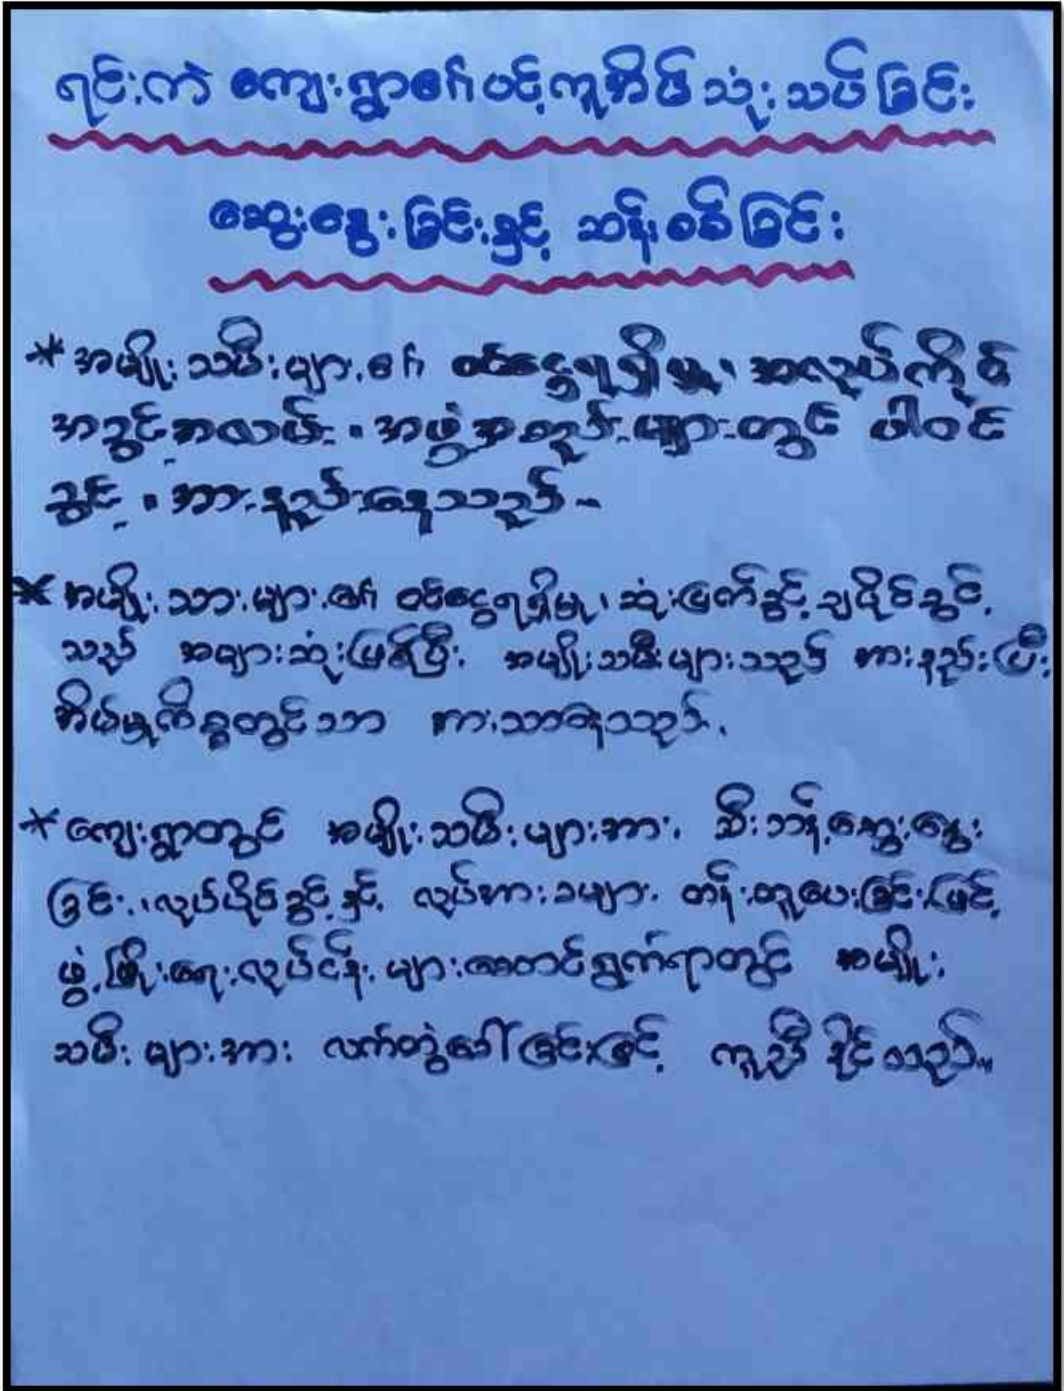 ရင်းကဲ ကျေးရွာ၏ပင့်ကူအိမ်သုံးသပ်ခြင်း
ဆွေးနွေးခြင်းနှင့် ဆန်းစစ်ခြင်း
* အမျိုးသမီးများ၏ ဝင်ငွေရရှိမှု၊ အလုပ်ကိုင်
အခွင့်အလမ်း၊ အဖွဲ့အစည်းများတွင် ပါဝင်
ခွင့်၊ အားနည်းနေသည်။
* အမျိုးသားများ၏ ဝင်ငွေရရှိမှု၊ ဆုံးဖြတ်ခွင့်ချပိုင်ခွင့်
သည် အများဆုံးဖြစ်ပြီး အမျိုးသမီးများသည် အားနည်းပြီး
အိမ်မှုကိစ္စတွင်သာ အားသာနေသည်။
* ကျေးရွာတွင် အမျိုးသမီးများအား သီးသန့်ဆွေးနွေး
ခြင်း၊ လုပ်ပိုင်ခွင့်နှင့် လုပ်အားခများ တန်းတူပေးခြင်းဖြင့်
ဖွံ့ဖြိုးရေးလုပ်ငန်းများဆောင်ရွက်ရာတွင် အမျိုး
သမီးများအား လက်တွဲခေါ်ခြင်းဖြင့် ကူညီနိုင်သည်။